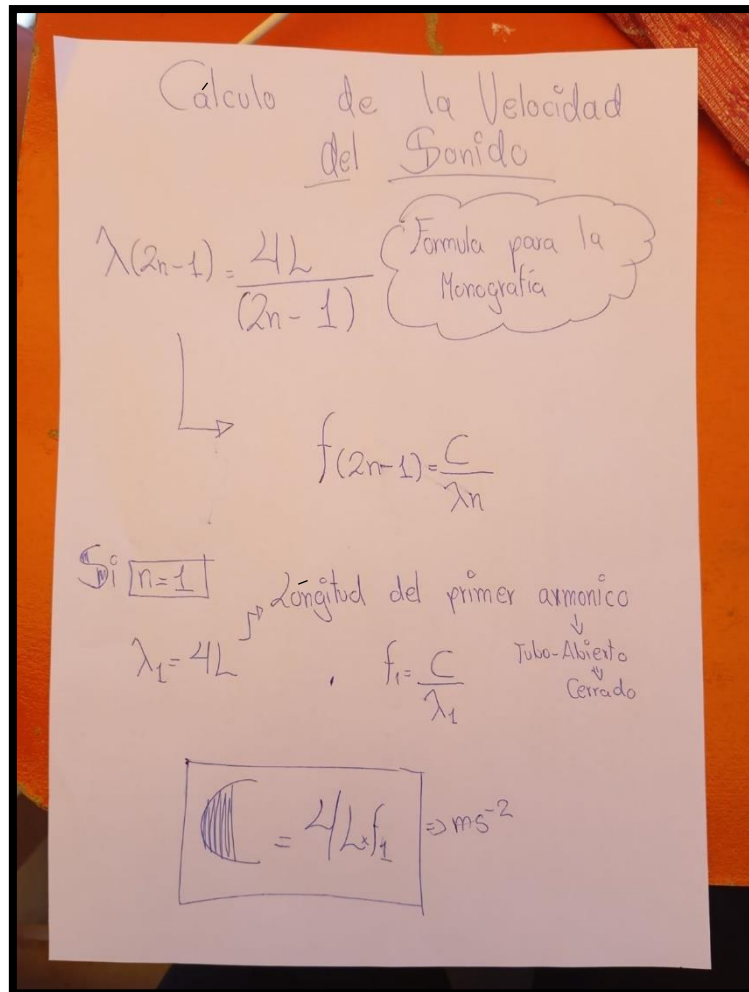 Cálculo de la Velocidad
del Sonido
λ(2n-1) = 4L / (2n-1)
Formula para la
Monografía
f(2n-1) = C / λn
Si n=1
Lóngitud del primer armonico
λ1 = 4L
f1 = C / λ1
Tubo-Abierto
Cerrado
C = 4L×f1 ⇒ ms⁻²